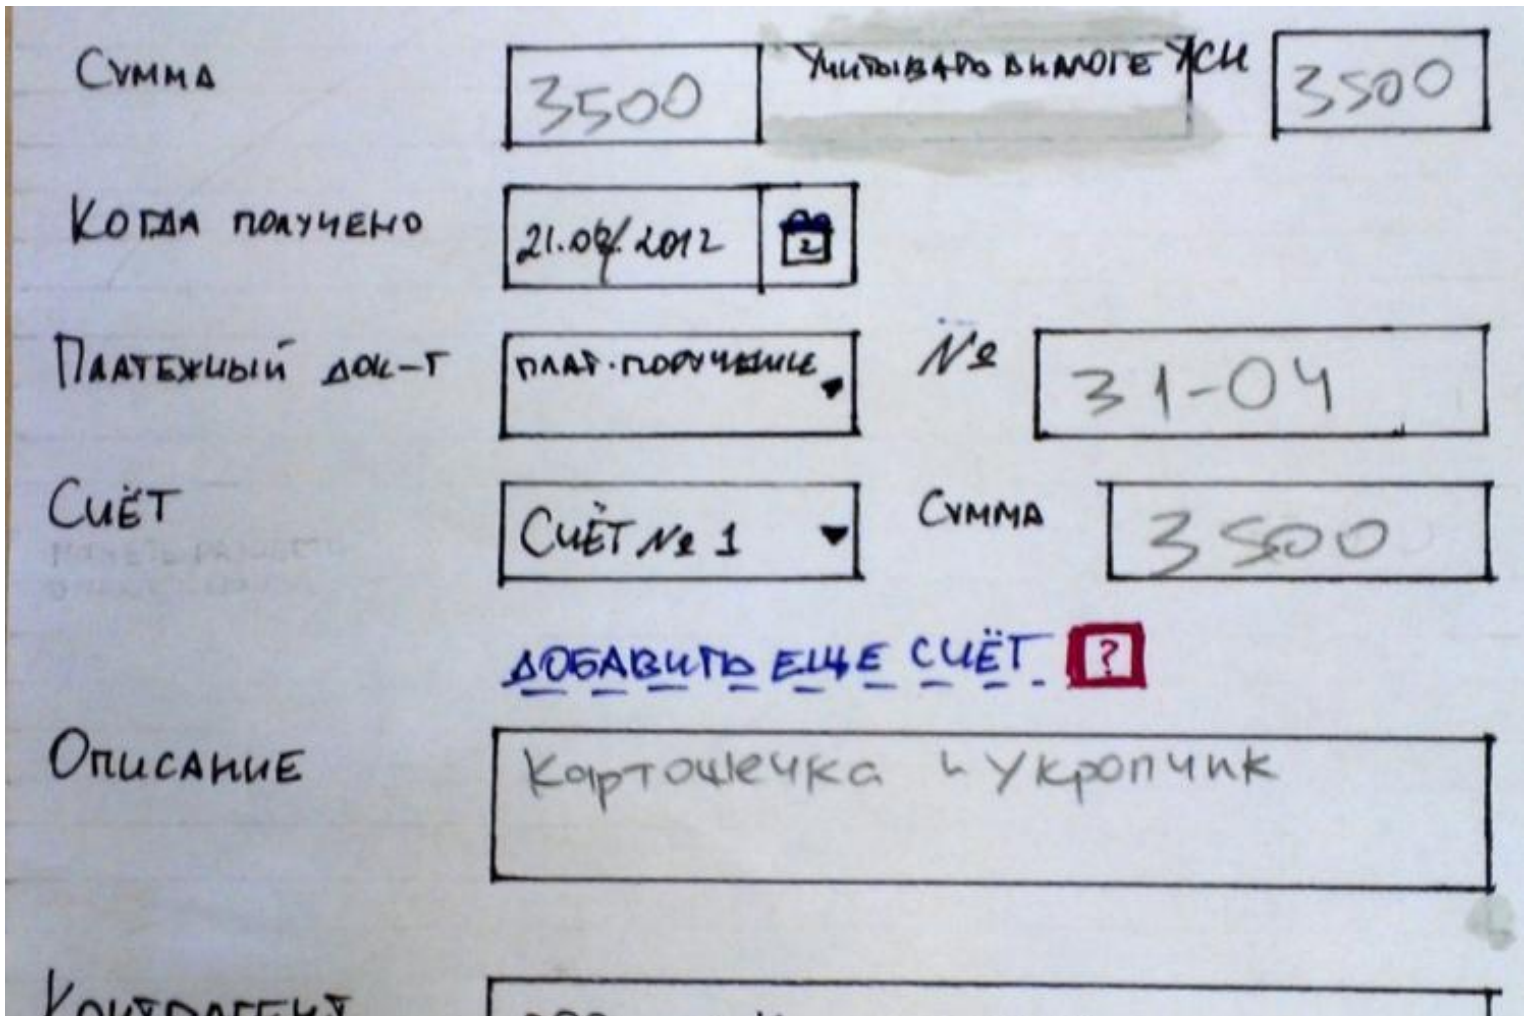 Сумма 3500 Учитывать в налоге УСН 3500
Когда получено 21. 2012 2
Платежный док-т плат. поручение № 31-04
Счёт Счёт № 1 Сумма 3500
Добавить еще счёт ?
Описание Картошечка и укропчик
Контрагент